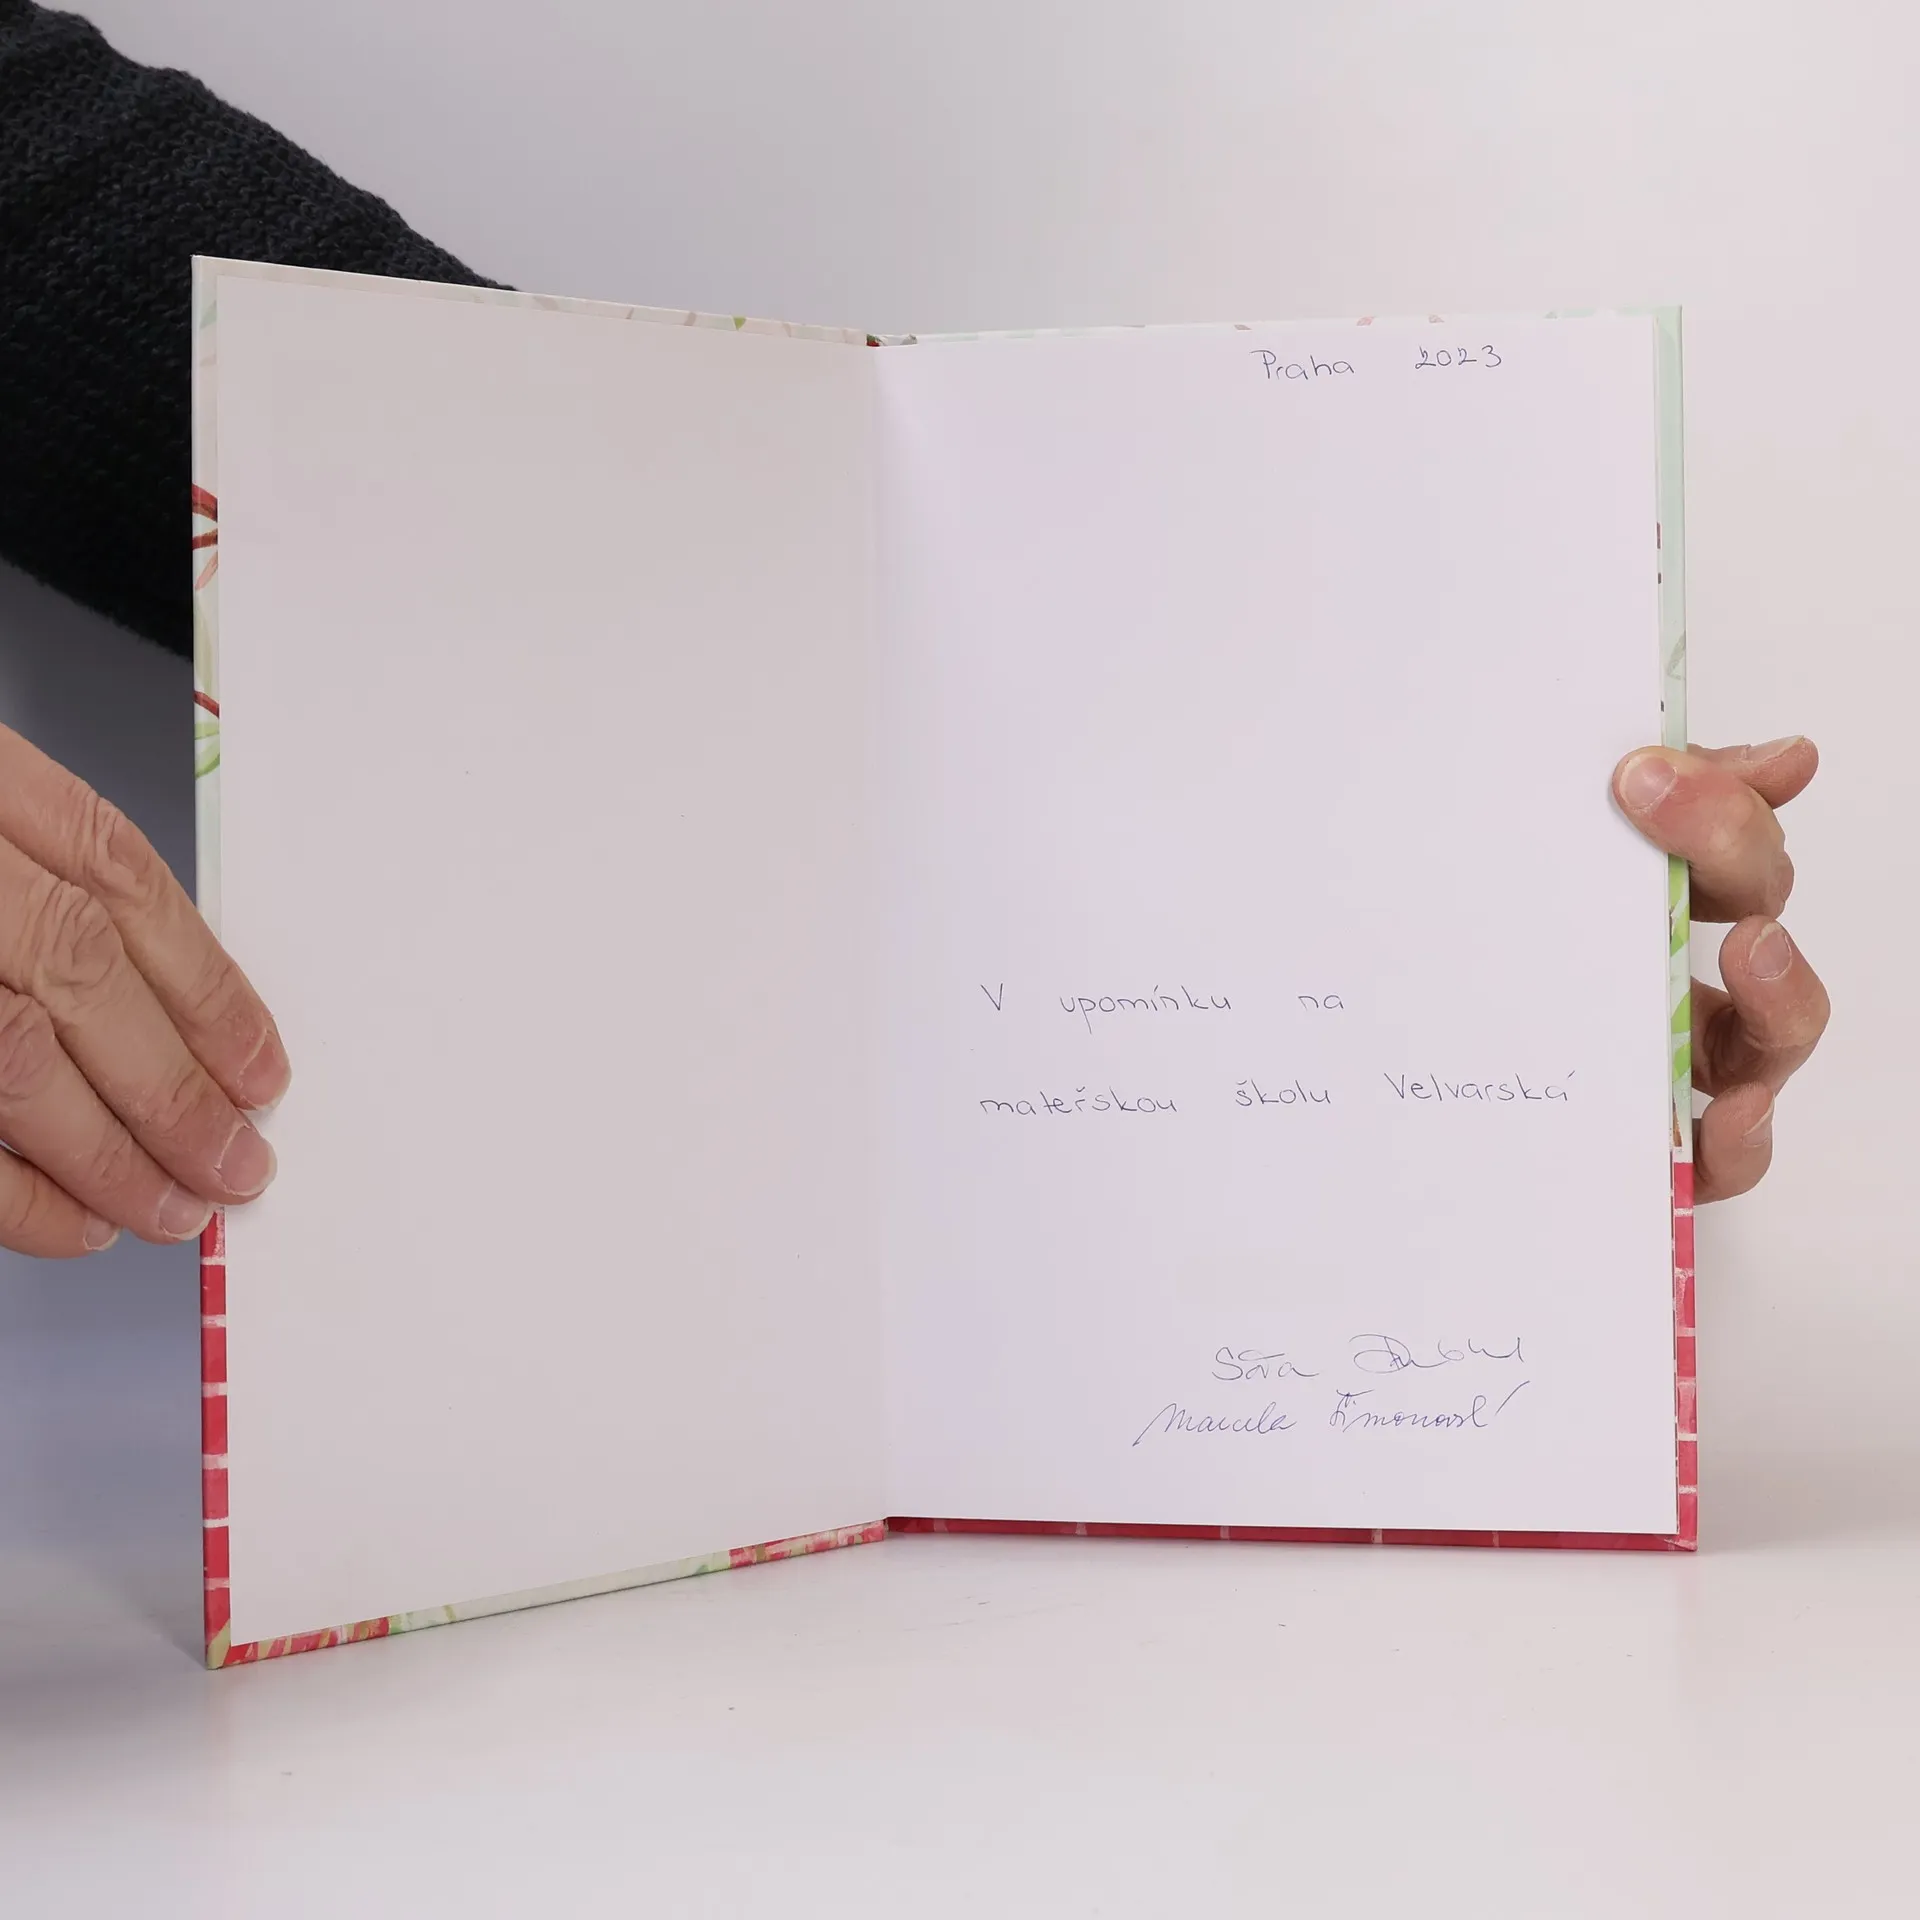 Praha 2023
V upomínku na
mateřskou školu Velvarská
Marcela